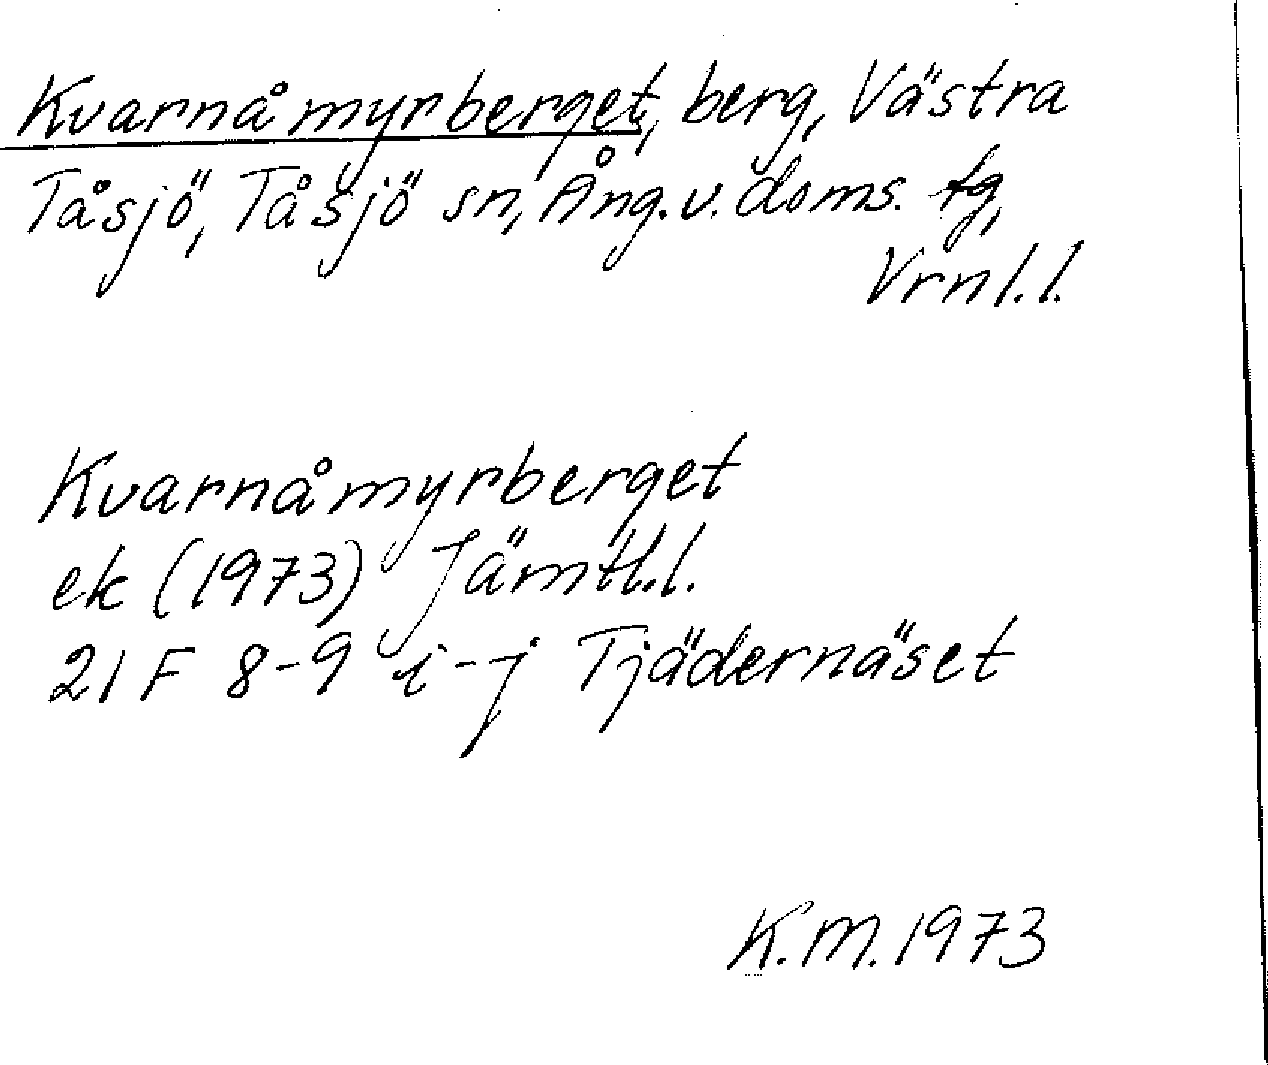 Kvarnåmyrberget, berg, Västra
Tåsjö, Tåsjö sn, Ång. v. doms. tg,
Vrnl. l.
Kvarnåmyrberget
ek (1973) Jämtl. l.
21 F 8-9 i-j Tjädernäset
K.M. 1973